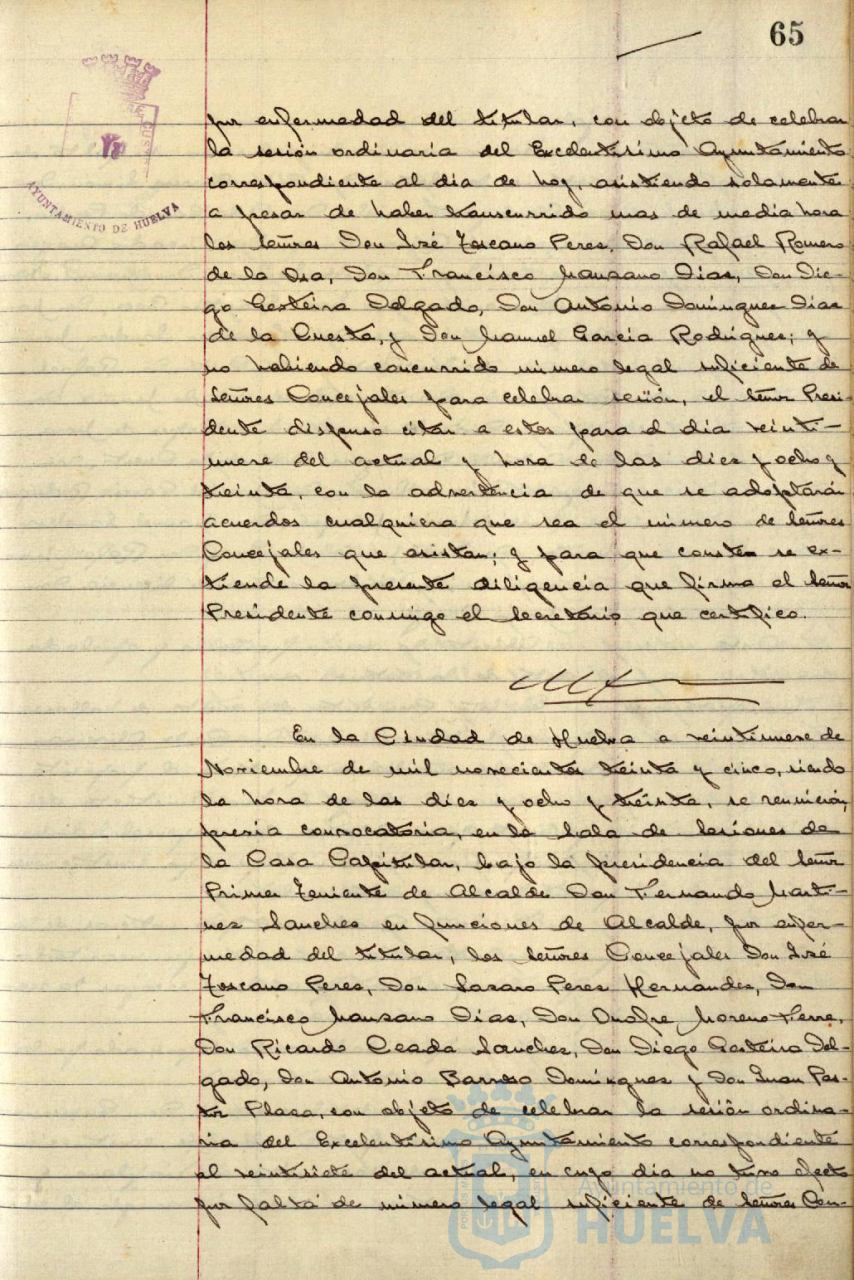 65
AYUNTAMIENTO DE HUELVA
por enfermedad del titular, con objeto de celebrar
la sesión ordinaria del Excelentísimo Ayuntamiento
correspondiente al día de hoy, asistiendo solamente
a pesar de haber transcurrido mas de media hora
los señores Don José Toscano Peres, Don Rafael Romero
de la Osa, Don Francisco Manzano Dias, Don Die-
go Gesteira Delgado, Don Antonio Domingues Dias
de la Cuesta, y Don Manuel García Rodrígues; y
no habiendo concurrido número legal suficiente de
Señores Concejales para celebrar sesión, el señor Presi-
dente dispuso citar a estos para el día veinti-
nueve del actual y hora de las dies y ocho y
treinta, con la advertencia de que se adoptarán
acuerdos cualquiera que sea el número de señores
Concejales que asistan; y para que conste se ex-
tiende la presente diligencia que firma el señor
Presidente conmigo el Secretario que certifico.
En la Ciudad de Huelva a veintinueve de
Noviembre de mil novecientos treinta y cinco, siendo
la hora de las dies y ocho y treinta, se reunieron,
previa convocatoria, en la Sala de Sesiones de
la Casa Capitular, bajo la presidencia del Señor
Primer Teniente de Alcalde Don Fernando Martí-
nez Sanches en funciones de Alcalde, por enfer-
medad del titular, los señores Concejales Don José
Toscano Peres, Don Lazaro Peres Hernandes, Don
Francisco Manzano Dias, Don Onofre Moreno Ferre,
Don Ricardo Ceada Sanches, Don Diego Gesteira Del-
gado, Don Antonio Barroso Domingues y Don Juan Pas-
tor Plaza, con objeto de celebrar la sesión ordina-
ria del Excelentísimo Ayuntamiento correspondiente
al veintisiete del actual, en cuyo día no tuvo efecto
por falta de número legal suficiente de señores Con-
Ayuntamiento de
HUELVA